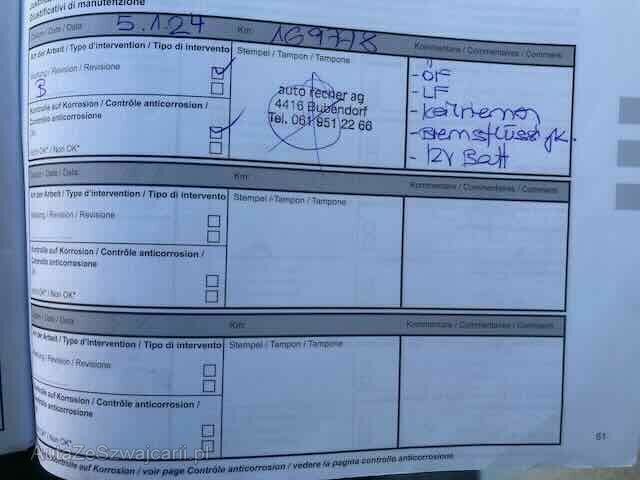 Giustificativi di manutenzione
Datum / Date / Data: 5.1.24 Km: 169778 Kommentare / Commentaires / Commenti
Art der Arbeit / Type d'intervention / Tipo di intervento
Wartung / Revision / Revisione
B
Kontrolle auf Korrosion / Contrôle anticorrosion /
Controllo anticorrosione
OK
Non OK* / Non OK*
Stempel / Tampon / Tampone
auto recher ag
4416 Bubendorf
Tel. 061 951 22 66
- ÖF
- LF
- Keilriemen
- Bremsflüss
- 12V Batt
Datum / Date / Data: Km: Kommentare / Commentaires / Commenti
Art der Arbeit / Type d'intervention / Tipo di intervento
Wartung / Revision / Revisione
Kontrolle auf Korrosion / Contrôle anticorrosion /
Controllo anticorrosione
OK
Non OK* / Non OK*
Stempel / Tampon / Tampone
Datum / Date / Data: Km: Kommentare / Commentaires / Commenti
Art der Arbeit / Type d'intervention / Tipo di intervento
Wartung / Revision / Revisione
Kontrolle auf Korrosion / Contrôle anticorrosion /
Controllo anticorrosione
OK
Non OK* / Non OK*
Stempel / Tampon / Tampone
61
Kontrolle auf Korrosion / voir page Contrôle anticorrosion / vedere la pagina controllo anticorrosione
AutaZeSzwajcarii.pl